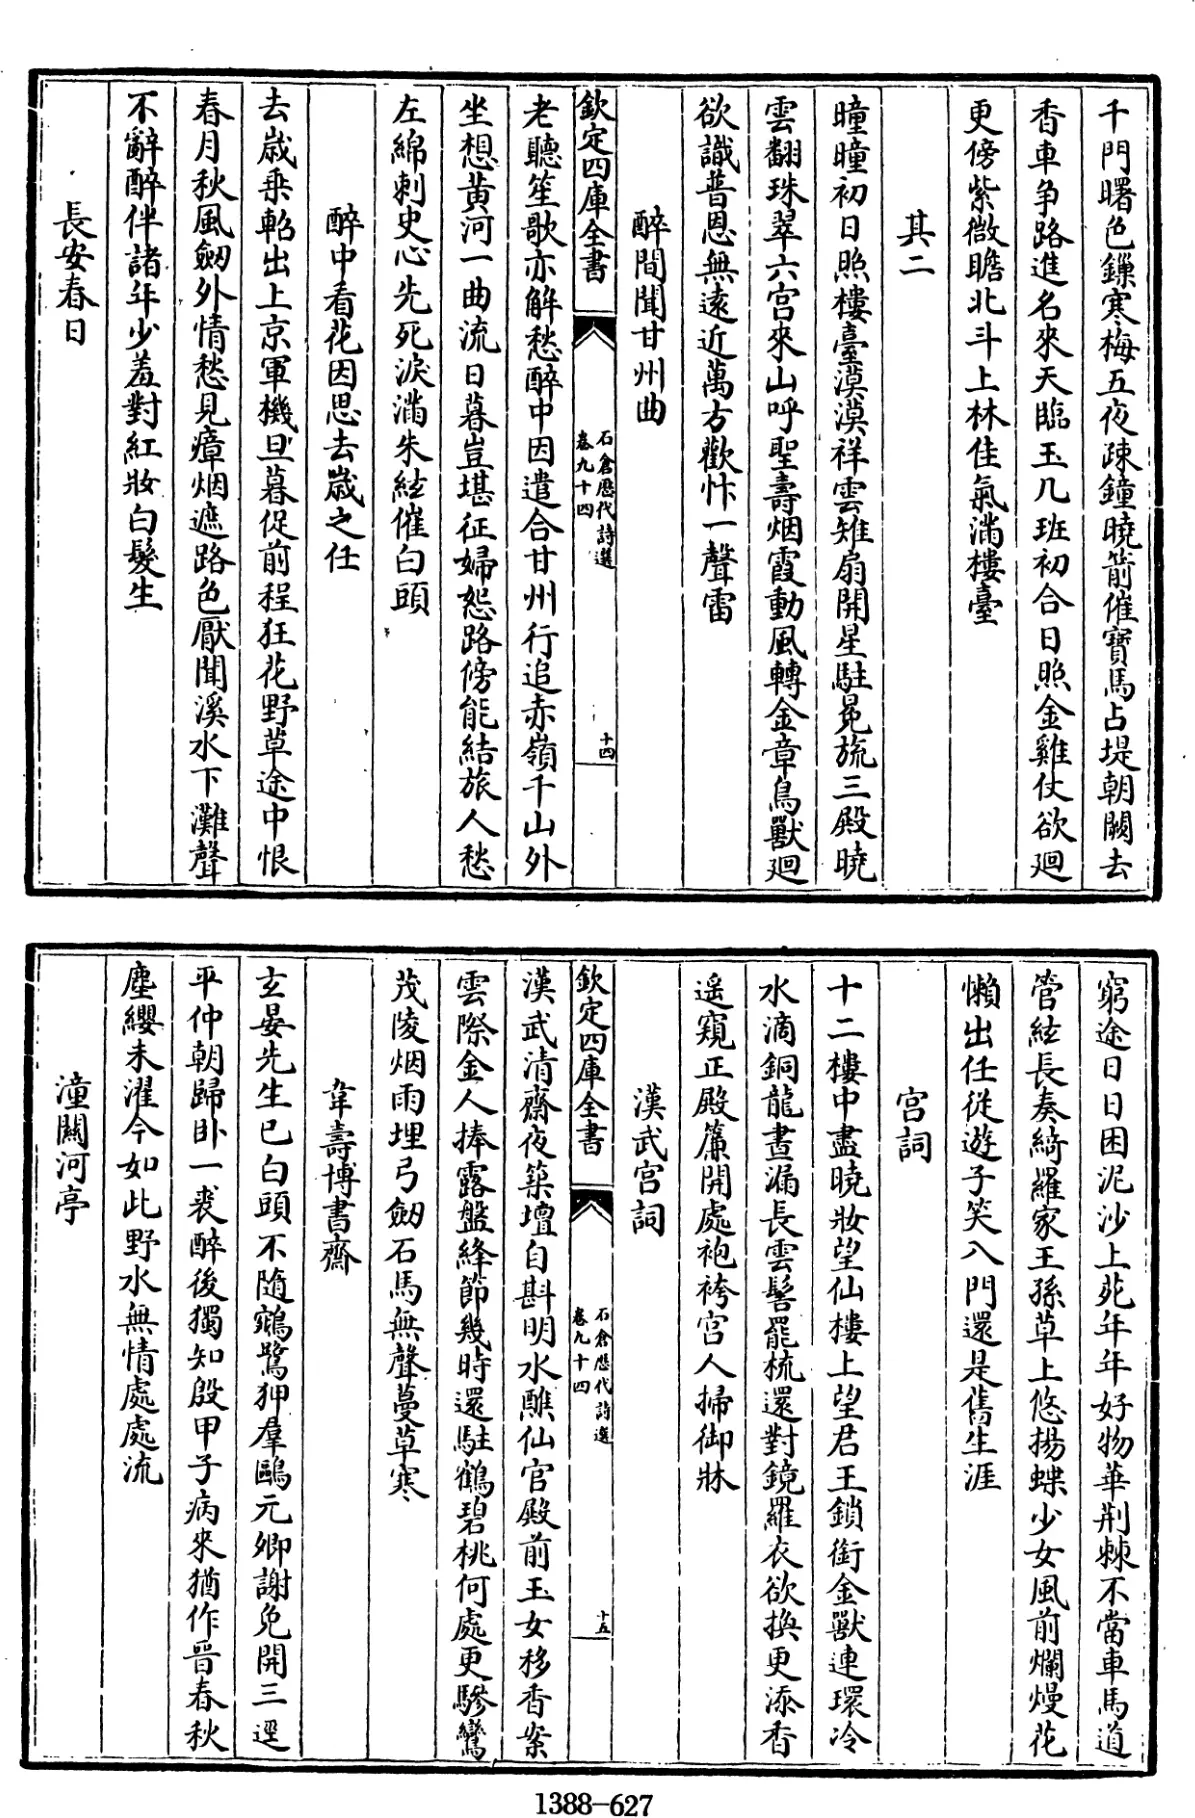 千門曙色鏁寒梅五夜疎鐘曉箭催寶馬占堤朝闕去
香車争路進名來天臨玉几班初合日照金雞仗欲廻
更傍紫微瞻北斗上林佳氣滿樓臺
其二
曈曈初日照樓臺漠漠祥雲雉扇開星駐冕旒三殿曉
雲翻珠翠六宫來山呼聖壽烟霞動風轉金章鳥獸廻
欲識普恩無遠近萬方歡忭一聲雷
醉間聞甘州曲
欽定四庫全書
石倉歷代詩選
卷九十四
十四
老聽笙歌亦解愁醉中因遣合甘州行追赤嶺千山外
坐想黄河一曲流日暮豈堪征婦怨路傍能結旅人愁
左綿刺史心先死淚滿朱絃催白頭
醉中看花因思去嵗之任
去嵗乘軺出上京軍機旦暮促前程狂花野草途中恨
春月秋風劒外情愁見瘴烟遮路色厭聞溪水下灘聲
不辭醉伴諸年少羞對紅妝白髮生
長安春日
窮途日日困泥沙上苑年年好物華荆棘不當車馬道
管絃長奏綺羅家王孫草上悠揚蝶少女風前爛熳花
懶出任從遊子笑入門還是舊生涯
宫詞
十二樓中盡曉妝望仙樓上望君王鎖銜金獸連環冷
水滴銅龍晝漏長雲髻罷梳還對鏡羅衣欲換更添香
遥窺正殿簾開處袍袴宫人掃御牀
漢武宫詞
欽定四庫全書
石倉歷代詩選
卷九十四
十五
漢武清齋夜築壇自斟明水醮仙官殿前玉女移香案
雲際金人捧露盤絳節幾時還駐鶴碧桃何處更驂鸞
茂陵烟雨埋弓劒石馬無聲蔓草寒
韋壽博書齋
玄晏先生已白頭不隨鵷鷺狎羣鷗元卿謝免開三逕
平仲朝歸卧一裘醉後獨知殷甲子病來猶作晉春秋
塵纓未濯今如此野水無情處處流
潼關河亭
1388-627